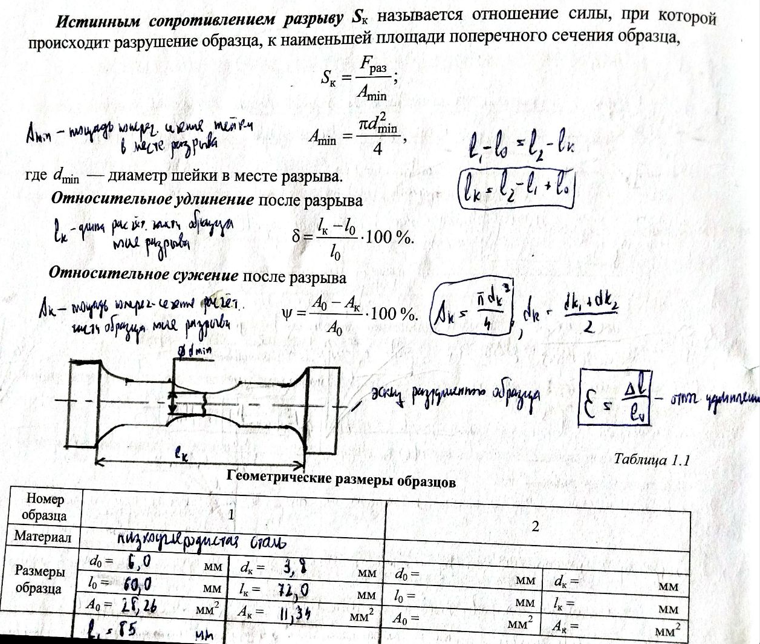 Истинным сопротивлением разрыву Sк называется отношение силы, при которой
происходит разрушение образца, к наименьшей площади поперечного сечения образца,
Sк = Fраз / Amin ;
Amin – площадь попереч. сечения шейки
в месте разрыва
Amin = πd²min / 4 ,
l₁-l₀ = l₂-lк
lк = l₂-l₁+l₀
где dmin — диаметр шейки в месте разрыва.
Относительное удлинение после разрыва
lк - длина расчёт. части образца
после разрыва
δ = (lк – l₀) / l₀ · 100 %.
Относительное сужение после разрыва
Aк – площадь попереч. сечения расчёт.
часть образца после разрыва
ψ = (A₀ – Aк) / A₀ · 100 %.
Aк = πdк² / 4 , dк = (dк₁+dк₂) / 2
ϕ dmin
lк
эскиз разрушенного образца
ε = Δl / lч – отн. удлинение
Таблица 1.1
Геометрические размеры образцов
Номер образца 1 2
Материал низкоуглеродистая сталь
Размеры образца
d₀ = 6,0 мм dк = 3,8 мм d₀ = мм dк = мм
l₀ = 60,0 мм lк = 72,0 мм l₀ = мм lк = мм
A₀ = 28,26 мм² Aк = 11,34 мм² A₀ = мм² Aк = мм²
l₁ = 85 мм